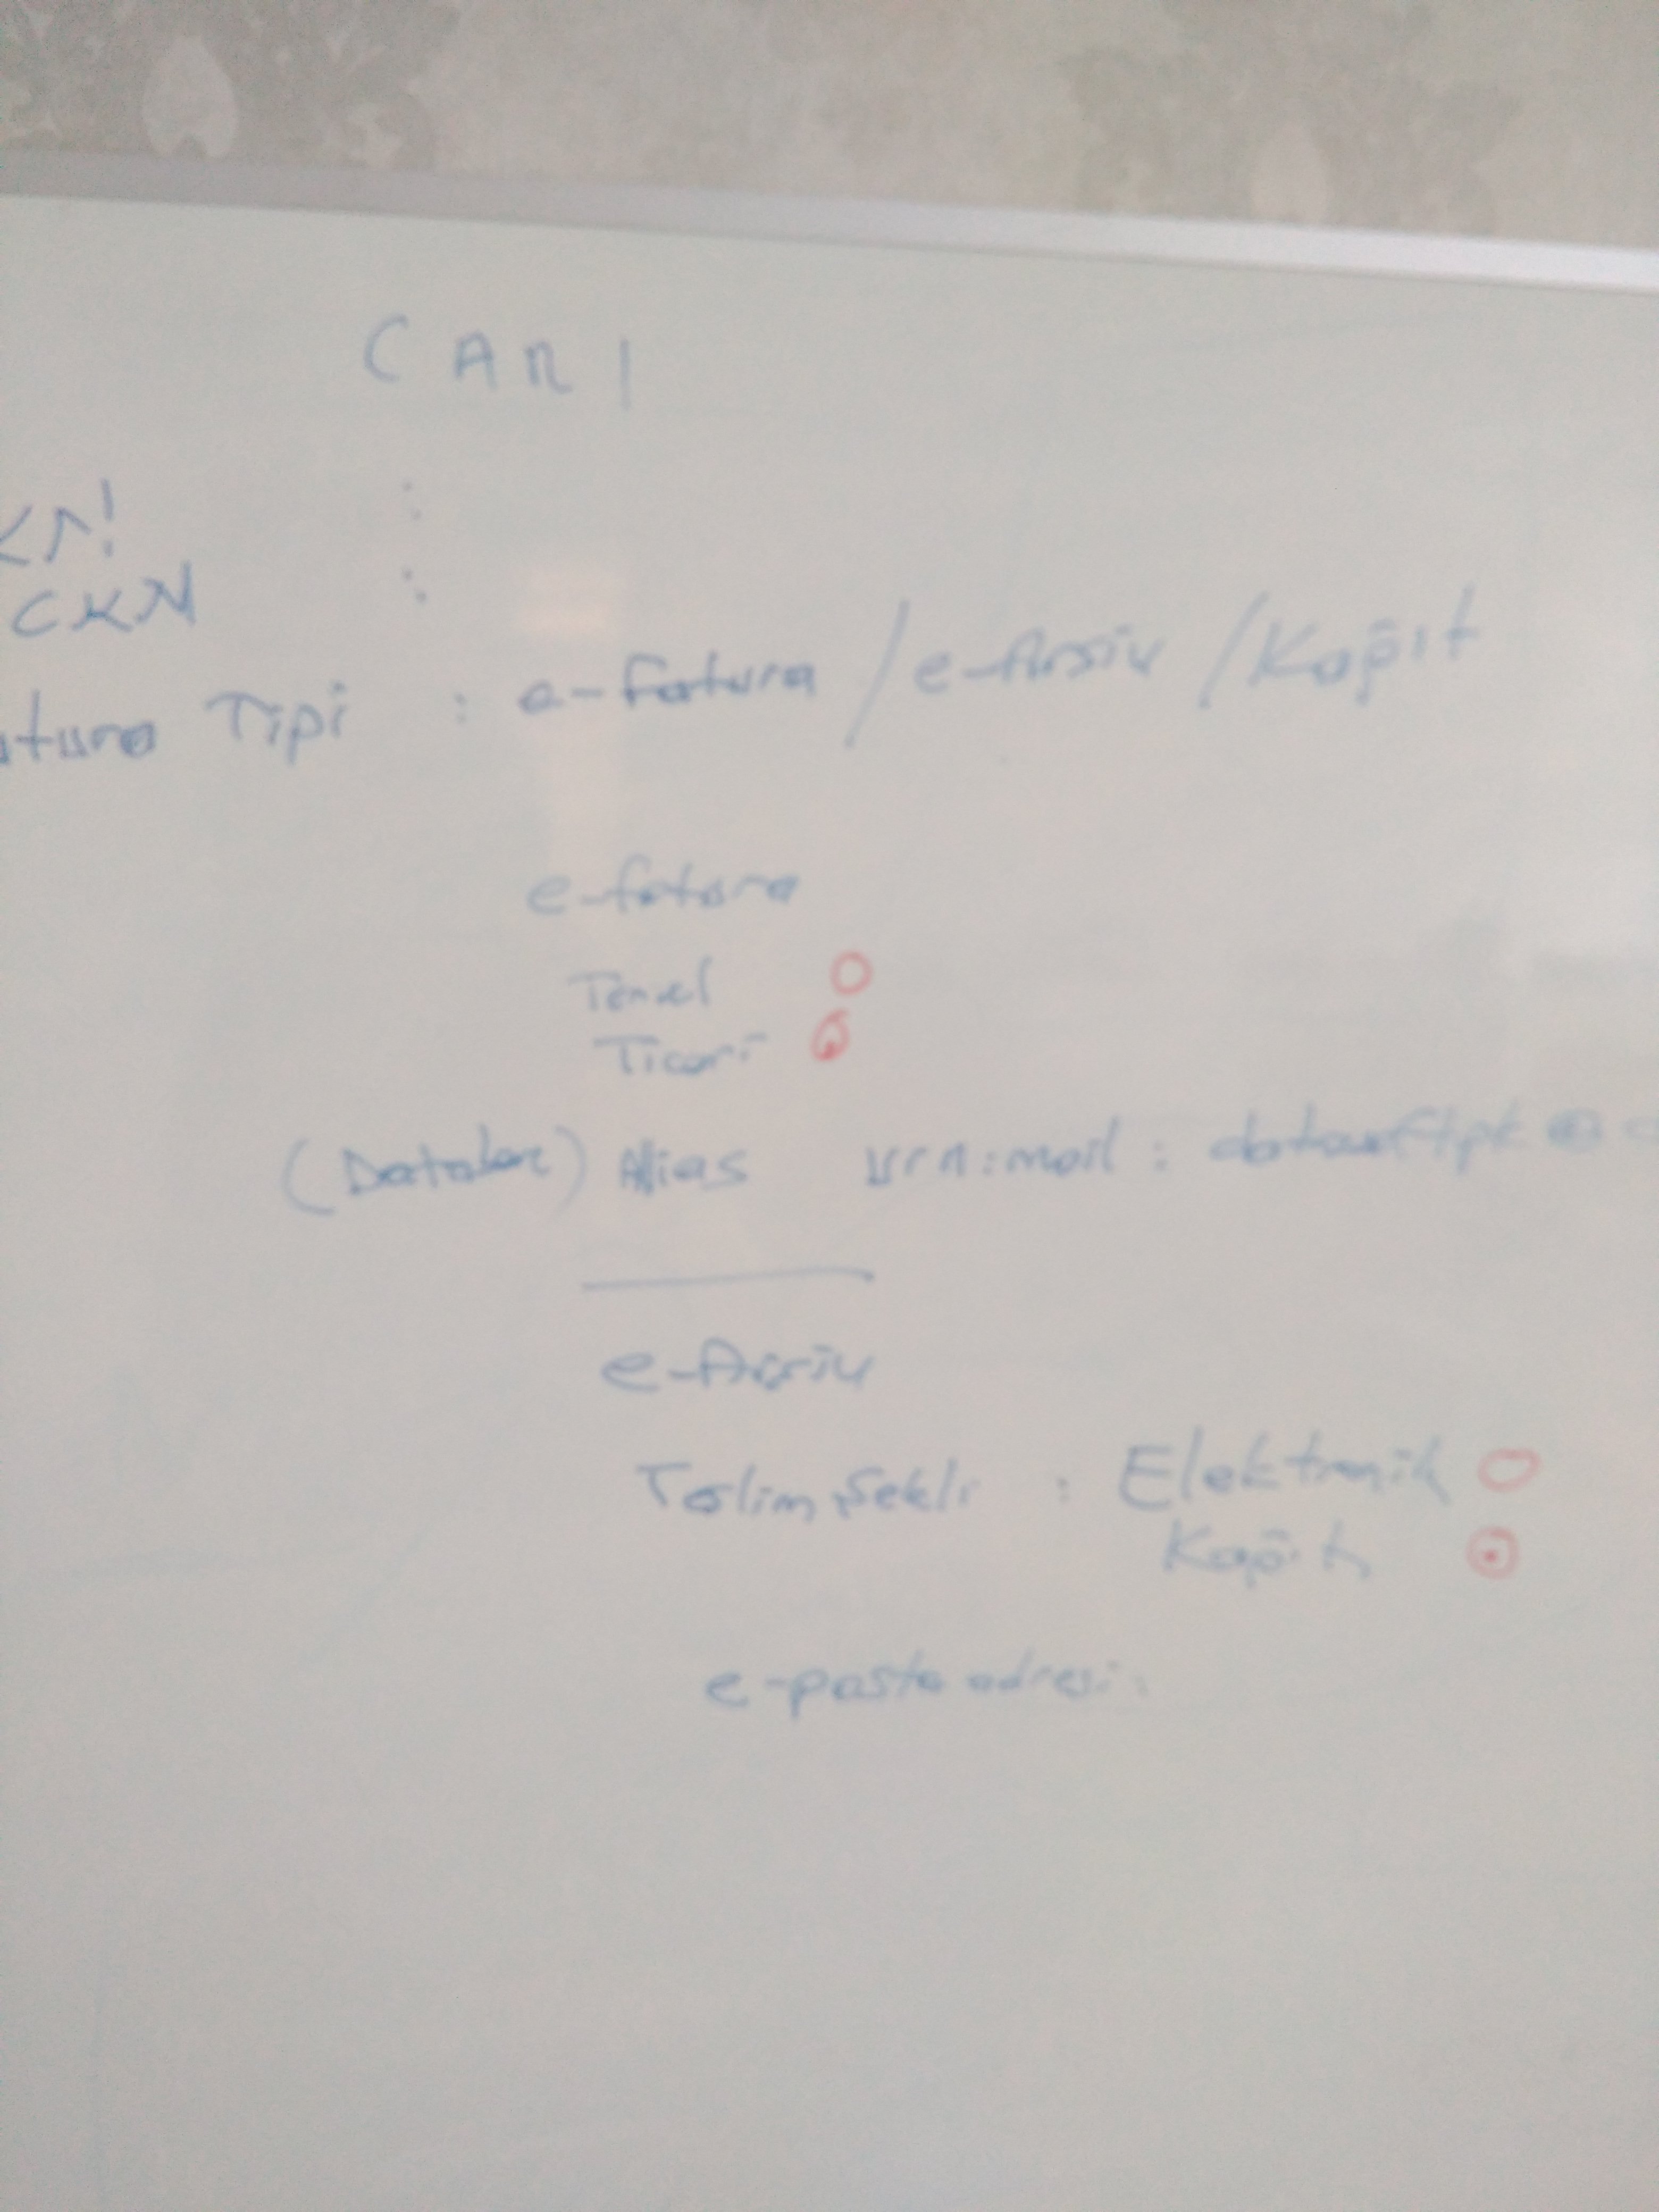 CARI
CKN
Tipi : e-fatura / e-Arşiv / Kağıt
e-fatura
Temel
Ticari
Alias urn:mail :
e-Arşiv
Teslim Şekli : Elektronik
Kağıt
e-posta adresi :